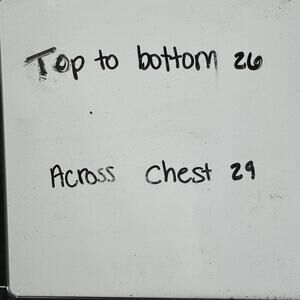 Top to bottom 26
Across Chest 29